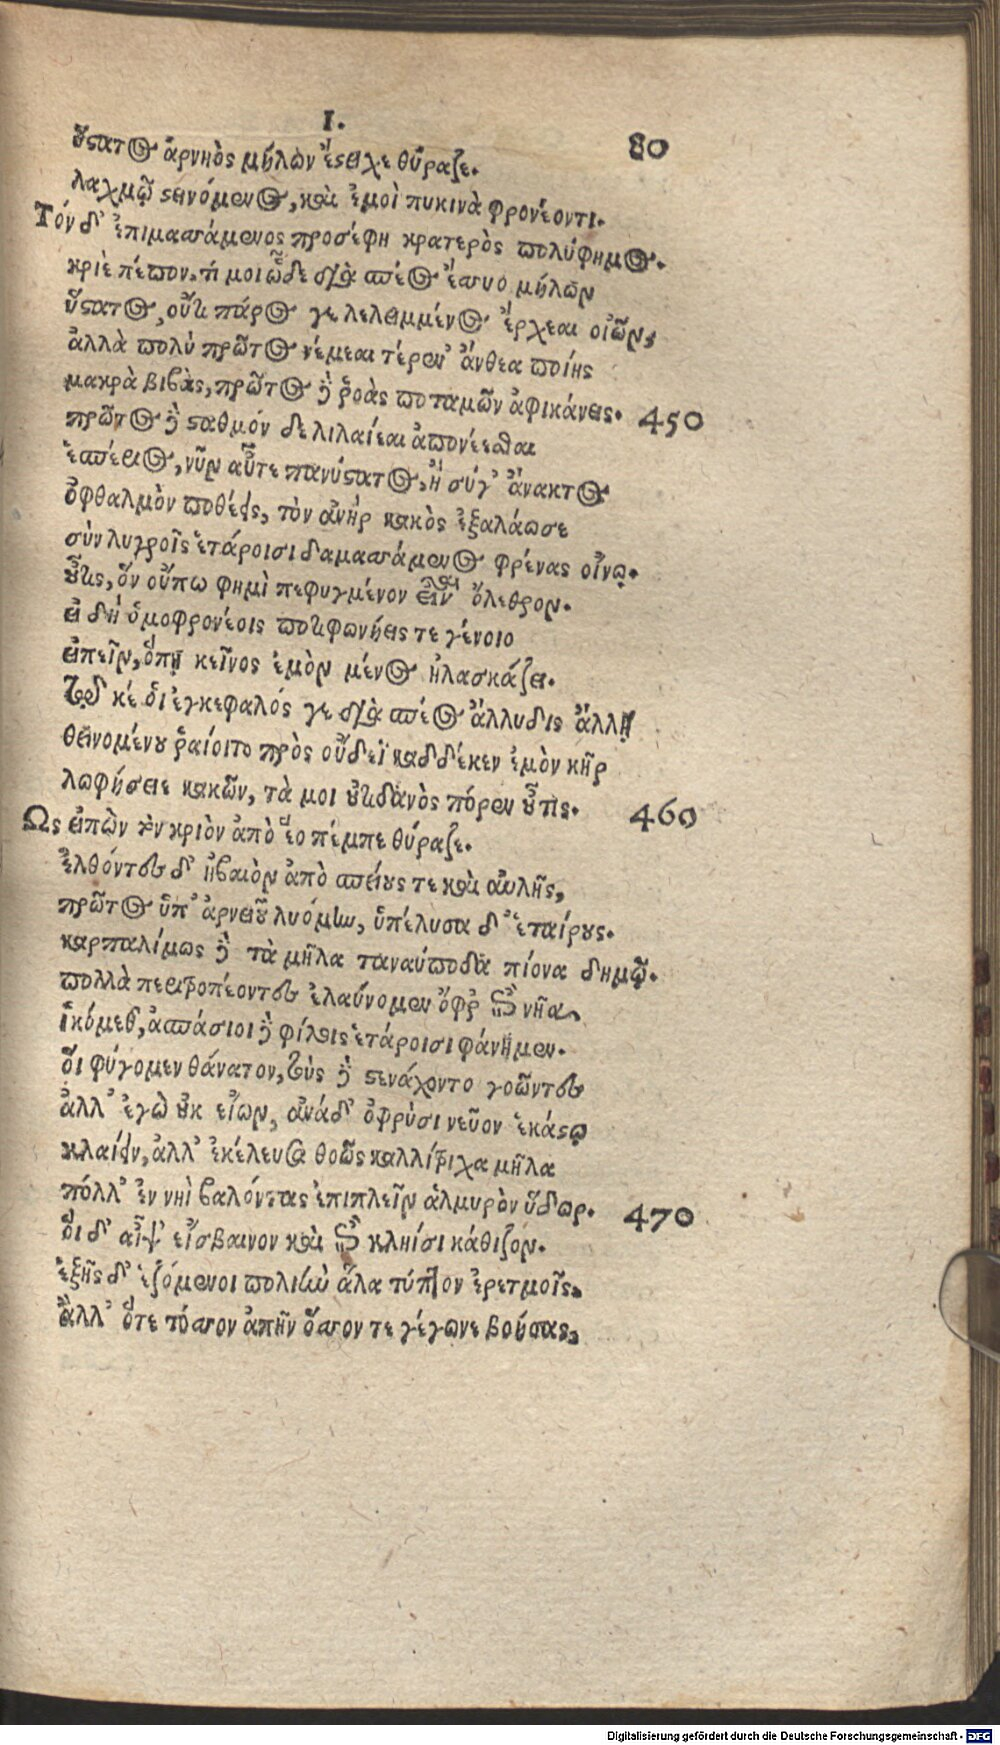 Ι. 80
ὕστατος ἀρνηὸς μήλων ἔστειχε θύραζε.
λαχμῷ στεινόμενος, καὶ ἐμοὶ πυκινὰ φρονέοντι.
Τόν δ' ἐπιμασσάμενος προσέφη κρατερὸς πολύφημος.
κριὲ πέπον, τί μοι ὧδε διὰ σπέος ἔσσυο μήλων
ὕστατος, οὔτι πάρος γε λελειμμένος ἔρχεαι οἰῶν,
ἀλλὰ πολὺ πρῶτος νέμεαι τέρεν' ἄνθεα ποίης
μακρὰ βιβὰς, πρῶτος δὲ ῥοὰς ποταμῶν ἀφικάνεις. 450
πρῶτος δὲ σταθμόν δε λιλαίεαι ἀπονέεσθαι
ἑσπέριος, νῦν αὖτε πανύστατος, ἦ σύγ' ἄνακτος
ὀφθαλμὸν ποθέεις, τὸν ἀνὴρ κακὸς ἐξαλάωσε
σὺν λυγροῖς ἑτάροισι δαμασσάμενος φρένας οἴνῳ.
οὖτις, ὃν οὔπω φημὶ πεφυγμένον εἶναι ὄλεθρον.
εἰ δὴ ὁμοφρονέοις ποτιφωνήεις τε γένοιο
εἰπεῖν, ὅπῃ κεῖνος ἐμὸν μένος ἠλασκάζει.
τῷ κέ οἱ ἐγκεφαλός γε διὰ σπέος ἄλλυδις ἄλλῃ
θεινομένου ῥαίοιτο πρὸς οὔδεϊ καδδέκεν ἐμὸν κῆρ
λωφήσειε κακῶν, τὰ μοι οὐτιδανὸς πόρεν οὖτις. 460
Ως εἰπὼν τὸν κριὸν ἀπὸ ἕο πέμπε θύραζε.
ἐλθόντες δ' ἠβαιὸν ἀπὸ σπείους τε καὶ αὐλῆς,
πρῶτος ὑπ' ἀρνειοῦ λυόμην, ὑπέλυσα δ' ἑταίρους.
καρπαλίμως δὲ τὰ μῆλα ταναύποδα πίονα δημῷ.
πολλὰ περιτροπέοντες ἐλαύνομεν ὄφρ' ἐπὶ νῆα,
ἱκόμεθ', ἀσπάσιοι δὲ φίλοις ἑτάροισι φάνημεν.
οἳ φύγομεν θάνατον, τοὺς δὲ στενάχοντο γοῶντες
ἀλλ' ἐγὼ οὐκ εἴων, ἀνὰ δ' ὀφρύσι νεῦον ἑκάστῳ
κλαίειν, ἀλλ' ἐκέλευσα θοῶς καλλίτριχα μῆλα
πόλλ' ἐν νηῒ βαλόντας ἐπιπλεῖν ἁλμυρὸν ὕδωρ. 470
οἳ δ' αἶψ' εἴσβαινον καὶ ἐπὶ κληίσι κάθιζον.
ἑξῆς δ' ἑζόμενοι πολιὴν ἅλα τύπτον ἐρετμοῖς.
ἀλλ' ὅτε τόσσον ἀπῆν ὅσσον τε γέγωνε βοήσας,
Digitalisierung gefördert durch die Deutsche Forschungsgemeinschaft - DFG